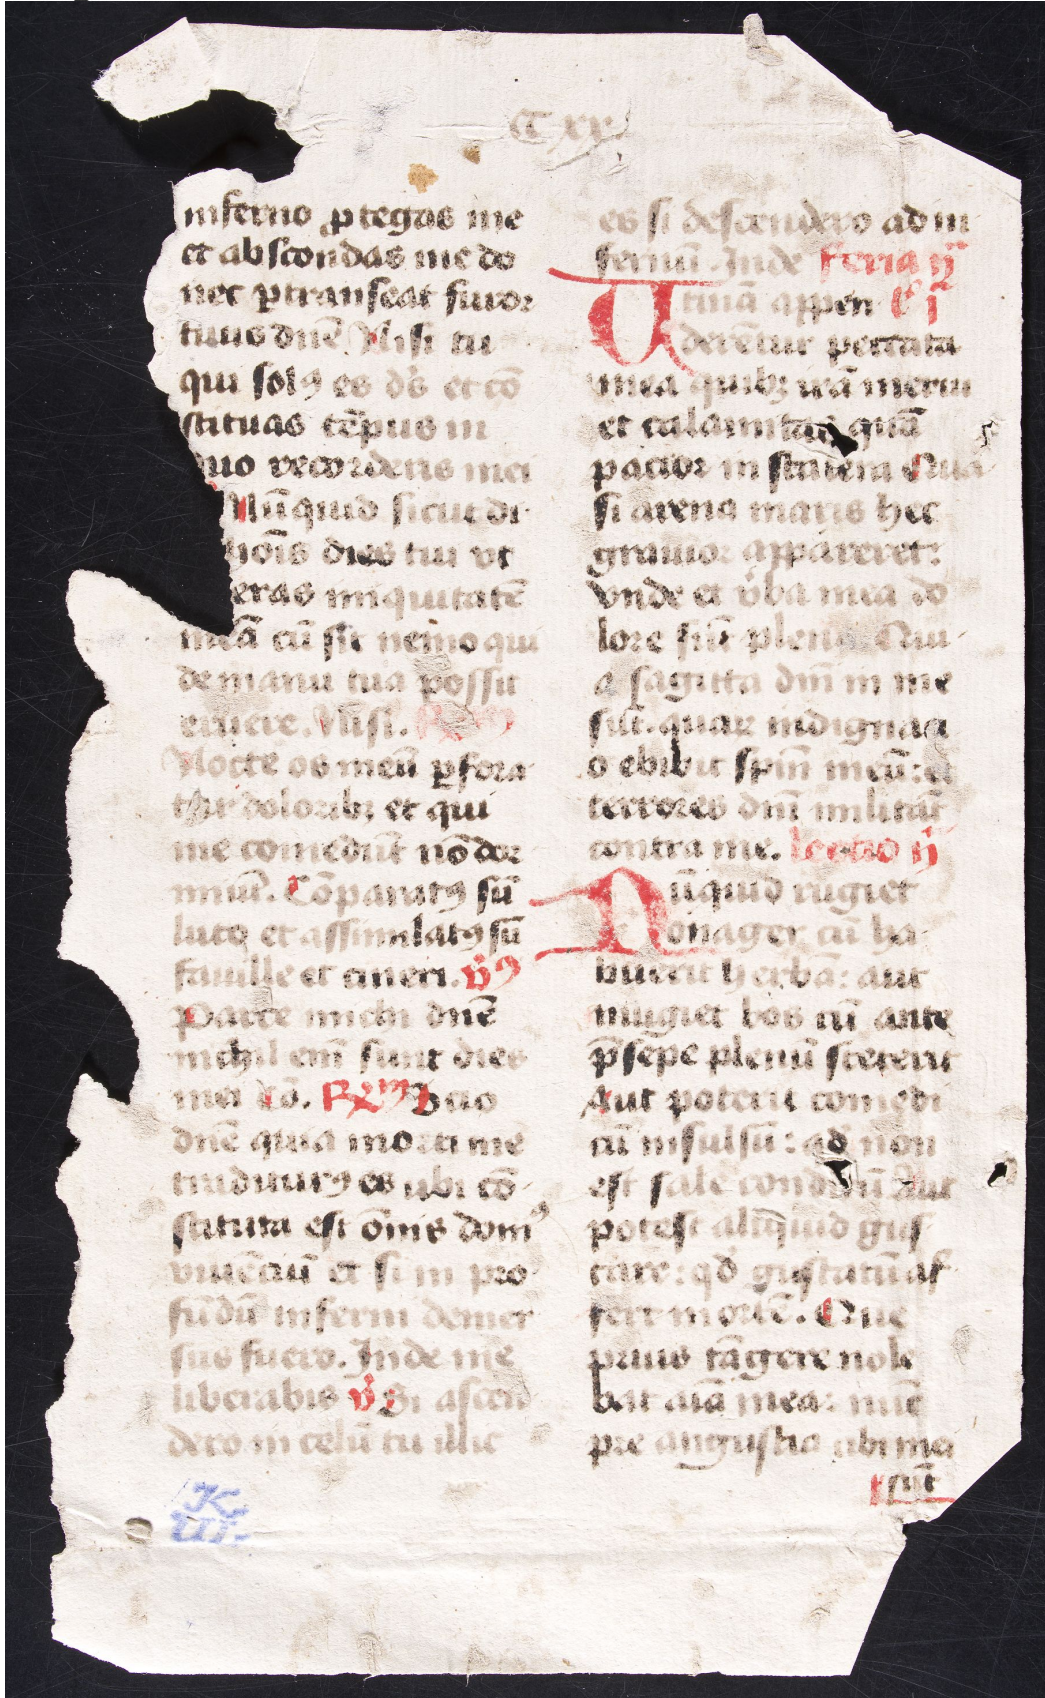 C xx
inferno ꝓtegas me
et abscondas me do
nec ꝑtranseat furor
tuus dn̄e Nisi tu
qui solꝰ es ds̄ et cō
stituas tēpus in
quo recorderis mei
Nūquid sicut di
hoīs dies tui vt
eras iniquitatē
meā cū sit nemo qui
de manu tua possit
eruere. Nisi.
Nocte os meū ꝑfora
tur doloribꝫ et qui
me comedūt nō dor
miūt. Cōparatꝰ sū
luto et assimilatꝰ sū
fauille et cineri. v̄ꝰ
Parce michi dn̄e
nichil em̄ sunt dies
mei Cō. Scio
dn̄e quia morti me
traditurꝰ es ubi cō
stituta est om̄is domꝰ
viuēciū et si in pro
fūdū inferni demer
sus fuero. Inde me
liberabis v̄ Si ascen
dero in celū tu illic
es si descendero ad in
fernū. Inde feria ij
Utinā appen
derētur peccata
mea quibꝫ irā merui
et calamitas quā
pacior in statera Qua
si arena maris hec
grauior appareret:
vnde et v̄ba mea do
lore sūt plena Qui
a sagitta dn̄i in me
sūt. quarꝫ indignaci
o ebibit spm̄ meū: et
terrores dn̄i militāt
contra me. lectio ij
Nūquid rugiet
onager cū ha
buerit herbā: aut
mugiet bos cū ante
p̄sepe plenū steterit
Aut poterit comedi
insulsū: qd̄ non
est sale conditū Aut
potest aliquid gus
tare: qd̄ gustatū af
fert mortē. Que
prius tāgere nole
bat aīa mea: nūc
pre angustia cibi mei
sūt
K.
W.